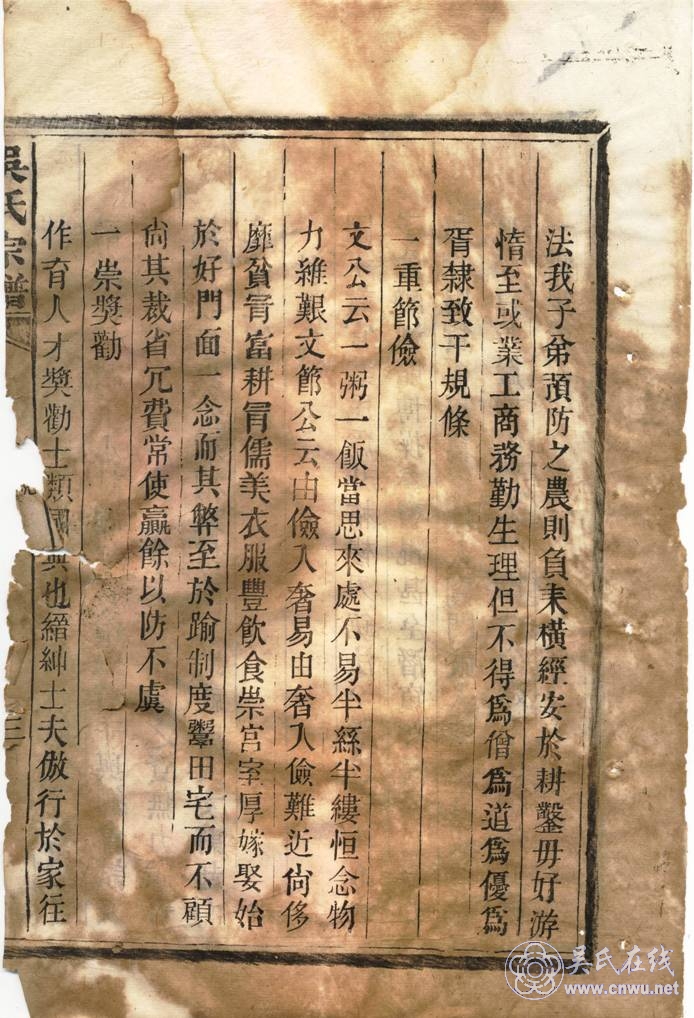 法我子弟預防之農則負耒橫經安於耕鑿毋好游
惰至或業工商務勤生理但不得爲僧爲道爲優爲
胥隸致干規條
一重節儉
文公云一粥一飯當思來處不易半絲半縷恒念物
力維艱文節公云由儉入奢易由奢入儉難近尙侈
靡貧胥富耕胥儒美衣服豐飮食崇宮室厚嫁娶始
於好門面一念而其弊至於踰制度鬻田宅而不顧
尙其裁省冗費常使贏餘以防不虞
一崇獎勸
作育人才獎勸士類國典也縉紳士夫倣行於家往
吳氏宗譜
三
吴氏在线
www.cnwu.net